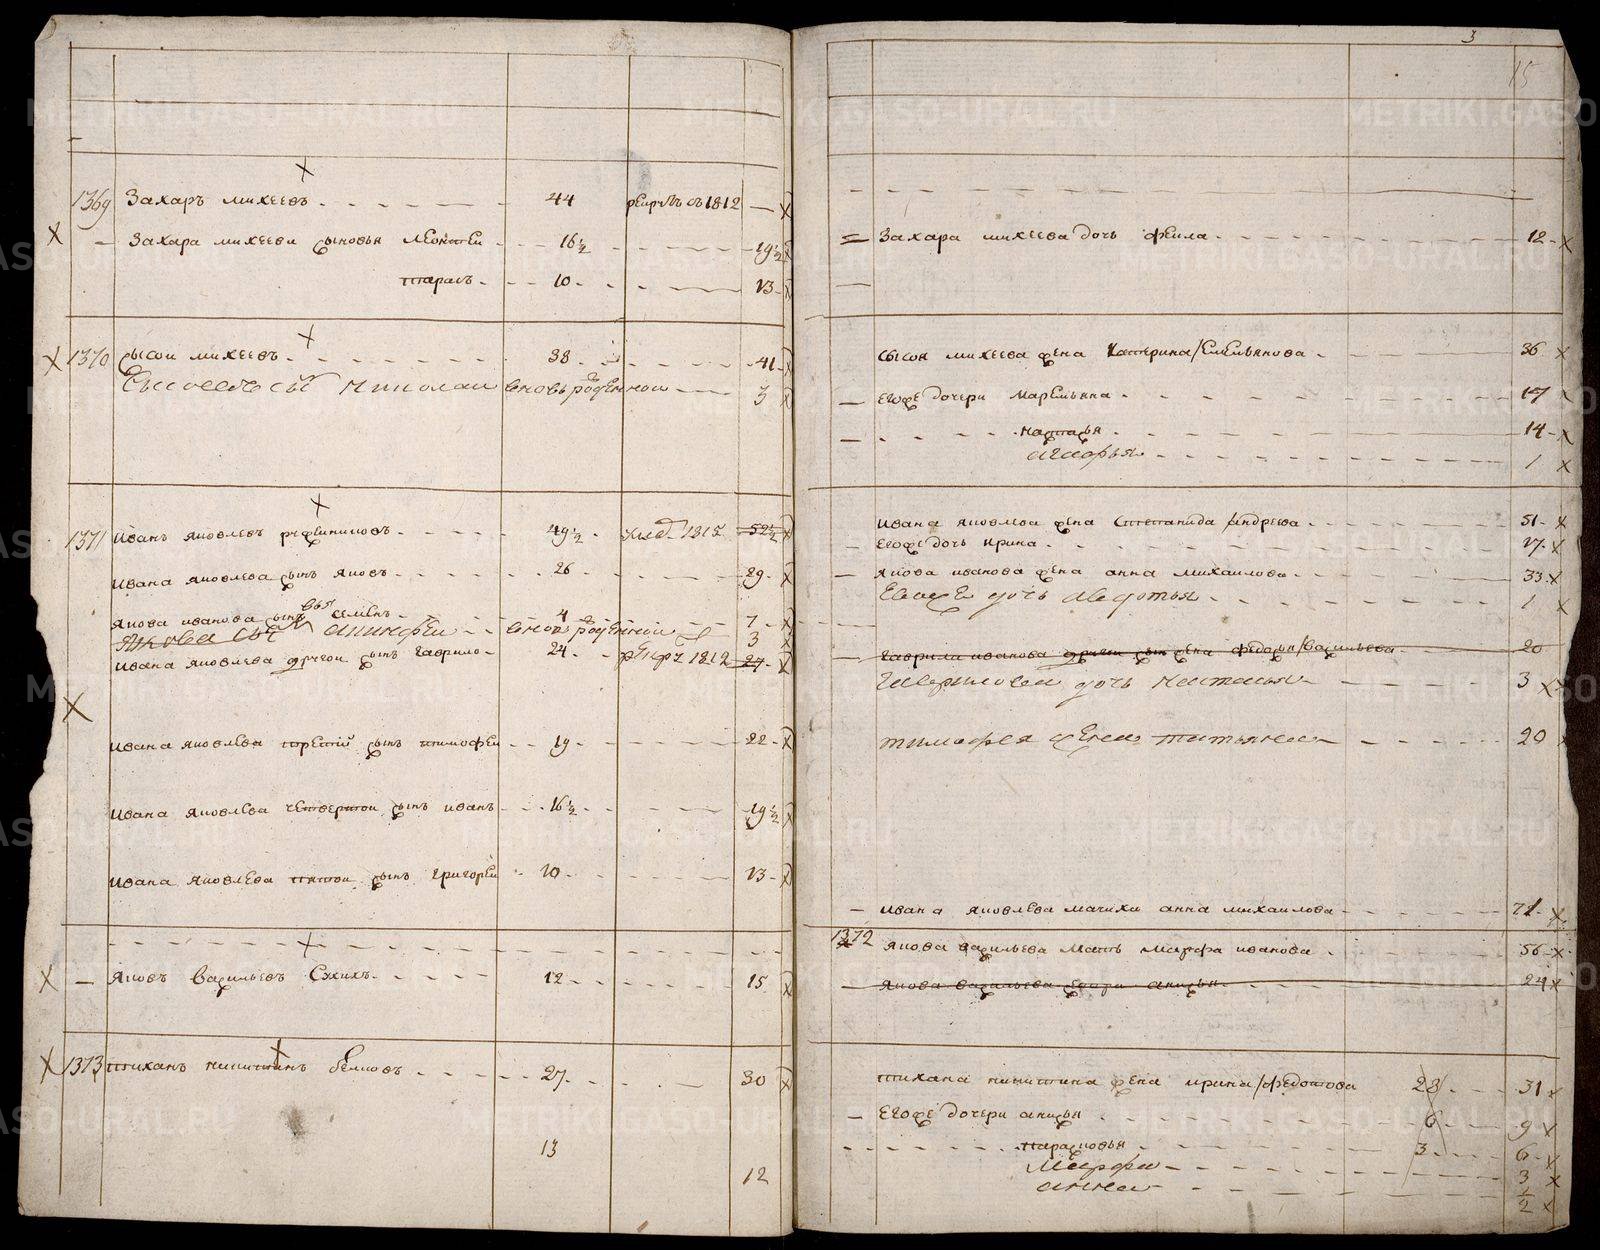 3
15
1369 Захаръ михеевъ 44 рекрутъ съ 1812
Захара михеева сыновья Леонтеи 16½ 19½
тарасъ 10 13
1370 сысои михеевъ 38 41
Сысоевъ сынъ Николаи вновь рожденнои 3
1371 иванъ яковлевъ 49½ 1815 52½
ивана яковлева сынъ яковъ 26 29
якова иванова сынъ семенъ 4 7
Якова сынъ вновь рожденнои 3
ивана яковлева другои сынъ гаврило 24 1812 27
ивана яковлева третiй сынъ тимофеи 19 22
ивана яковлева четвертои сынъ иванъ 16½ 19½
ивана яковлева пятои сынъ григореи 10 13
яковъ васильевъ Сухихъ 12 15
1373 тиханъ никитинъ беловъ 27 30
13
12
Захара михеева дочь фекла 12
сысоя михеева жена Катерина/Емельянова 36
Егоже дочери маремьяна 17
настасья 14
агафья 1
ивана яковлева жена степанида/андреева 51
Егоже дочь ирина 17
якова иванова жена анна михаилова 33
Евоже дочь авдотья 1
гаврила иванова жена федосья/васильева 20
Гавриловa дочь настасья 3
тимофея жена татьяна 20
ивана яковлева мачиха анна михаилова 71
1372 якова васильева мать марфа иванова 56
якова васильева сестра анисья 24
тихана никитина жена ирина/федотова 28 31
Егоже дочери анисья 6 9
парасковья 3 6
Марфа 3
анна ½